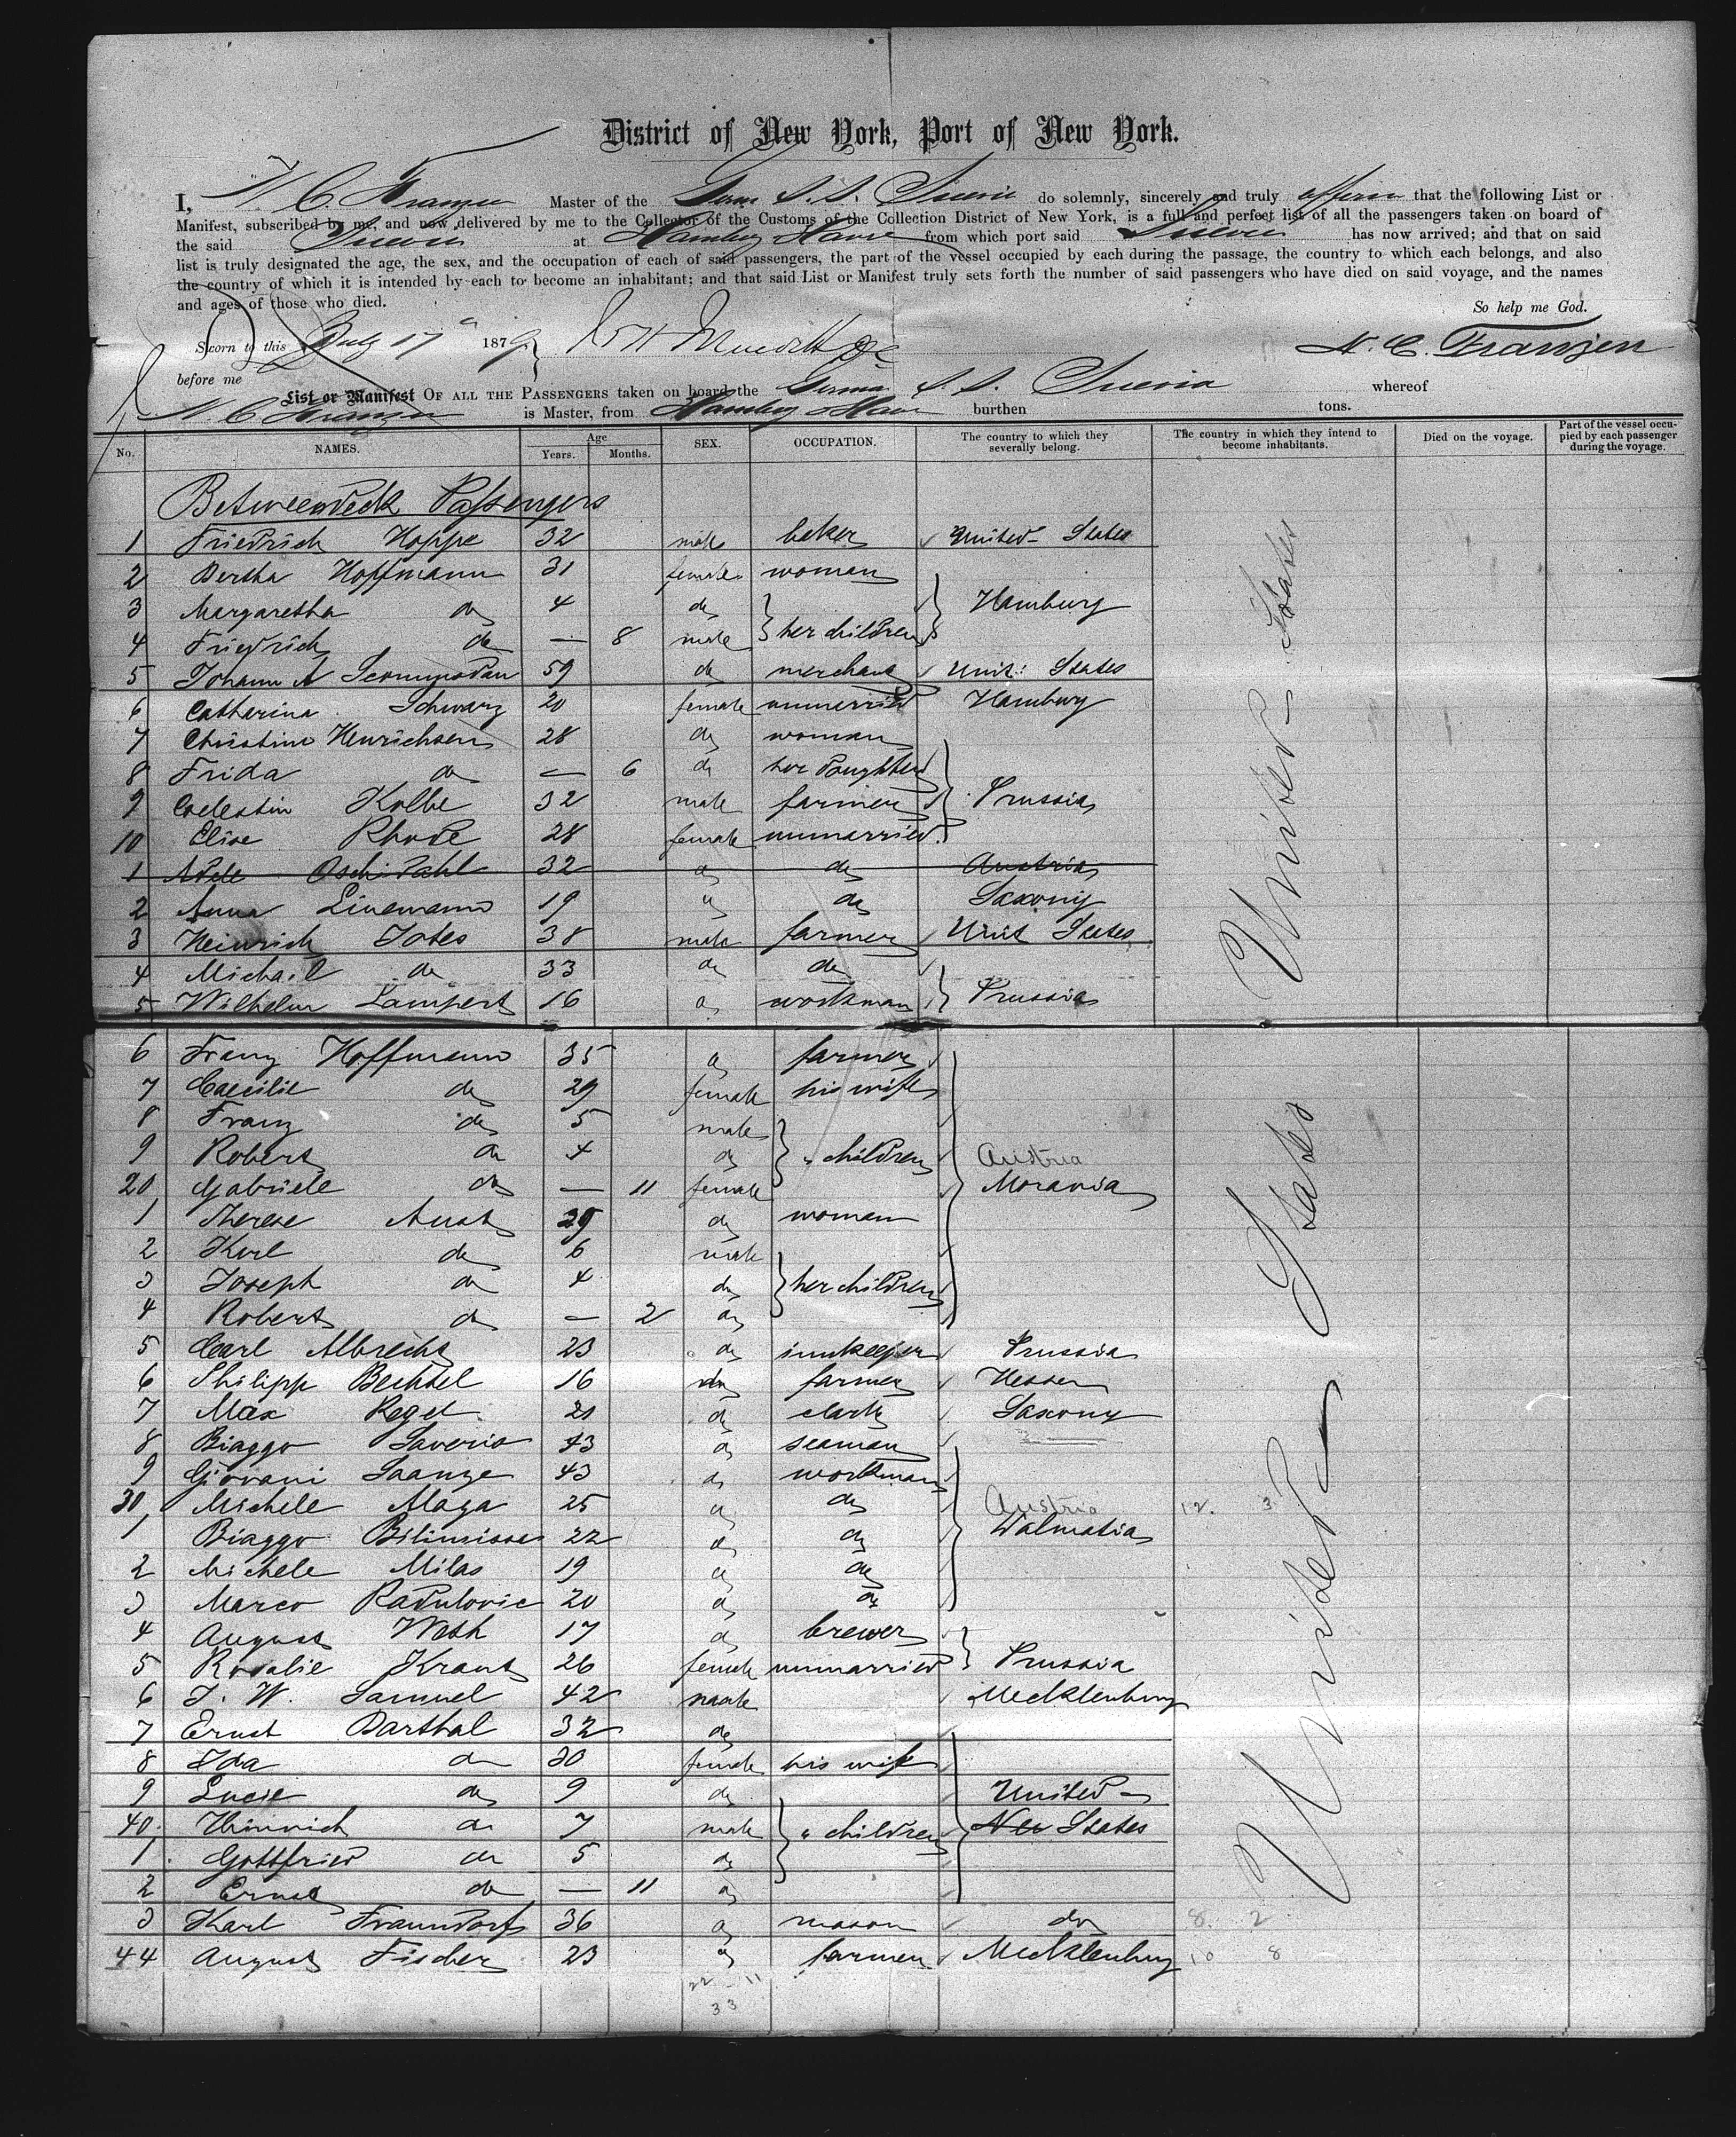 District of New York, Port of New York.
I, N. C. Franzen Master of the Germ S. S. Suevia do solemnly, sincerely and truly affirm that the following List or
Manifest, subscribed by me, and now delivered by me to the Collector of the Customs of the Collection District of New York, is a full and perfect list of all the passengers taken on board of
the said Suevia at Hamburg Havre from which port said Suevia has now arrived; and that on said
list is truly designated the age, the sex, and the occupation of each of said passengers, the part of the vessel occupied by each during the passage, the country to which each belongs, and also
the country of which it is intended by each to become an inhabitant; and that said List or Manifest truly sets forth the number of said passengers who have died on said voyage, and the names
and ages of those who died. So help me God.
Sworn to this July 17 1879 N. C. Franzen
before me
List or Manifest OF ALL THE PASSENGERS taken on board the German S. S. Suevia whereof
N. C. Franzen is Master, from Hamburg Havre burthen tons.
No. NAMES. Age Years. Months. SEX. OCCUPATION. The country to which they severally belong. The country in which they intend to become inhabitants. Died on the voyage. Part of the vessel occupied by each passenger during the voyage.
Betweendeck Passengers
1 Friedrich Hoppe 32 male beker United States
2 Bertha Hoffmann 31 female woman
3 Margaretha do 4 do her children Hamburg
4 Friedrich do — 8 male
5 Johann A 59 do merchant Unit: States
6 Catharina Schwarz 20 female unmarried Hamburg
7 Christine Henrichsen 28 do woman
8 Frida do — 6 do her daughter
9 Coelestin Kolbe 32 male farmer Prussia
10 Elise Rhode 28 female unmarried
1 Adele Oschidahl 32 do do Austria
2 Anna Linemann 19 do do Saxony
3 Heinrich Jobes 38 male farmer Unit States
4 Michail do 33 do do
5 Wilhelm Lampert 16 do workman Prussia
6 Franz Hoffmann 35 do farmer
7 Caecilie do 29 female his wife
8 Franz do 5 male
9 Robert do 4 do " children Austria
20 Gabriele do — 11 female Moravia
1 Therese Aust 29 do woman
2 Karl do 6 male
3 Joseph do 4 do her children
4 Robert do — 2 do
5 Carl Albrecht 23 do innkeeper Prussia
6 Philipp Bechtel 16 do farmer Hessen
7 Max Regel 21 do clark Saxony
8 Biaggo Saverio 43 do seaman
9 Giovani Saanze 43 do workman
30 Michele Maza 25 do do Austria 12. 3
1 Biaggo Bilimisse 22 do do Dalmatia
2 Michele Milas 19 do do
3 Marco Radulovic 20 do do
4 August Weth 17 do brewer
5 Rosalie Kraut 26 female unmarried Prussia
6 J. W. Samuel 42 male Mecklenburg
7 Ernst Barthal 32 do
8 Ida do 30 female his wife
9 Lucie do 9 do United
40 Heinrich do 7 male " children New States
1 Gottfried do 5 do
2 Ernst do — 11 do
3 Karl Fraundorf 36 do mason do 8. 2
44 August Fischer 23 do farmer Mecklenburg 10 8
22 - 11
33
United States
United States